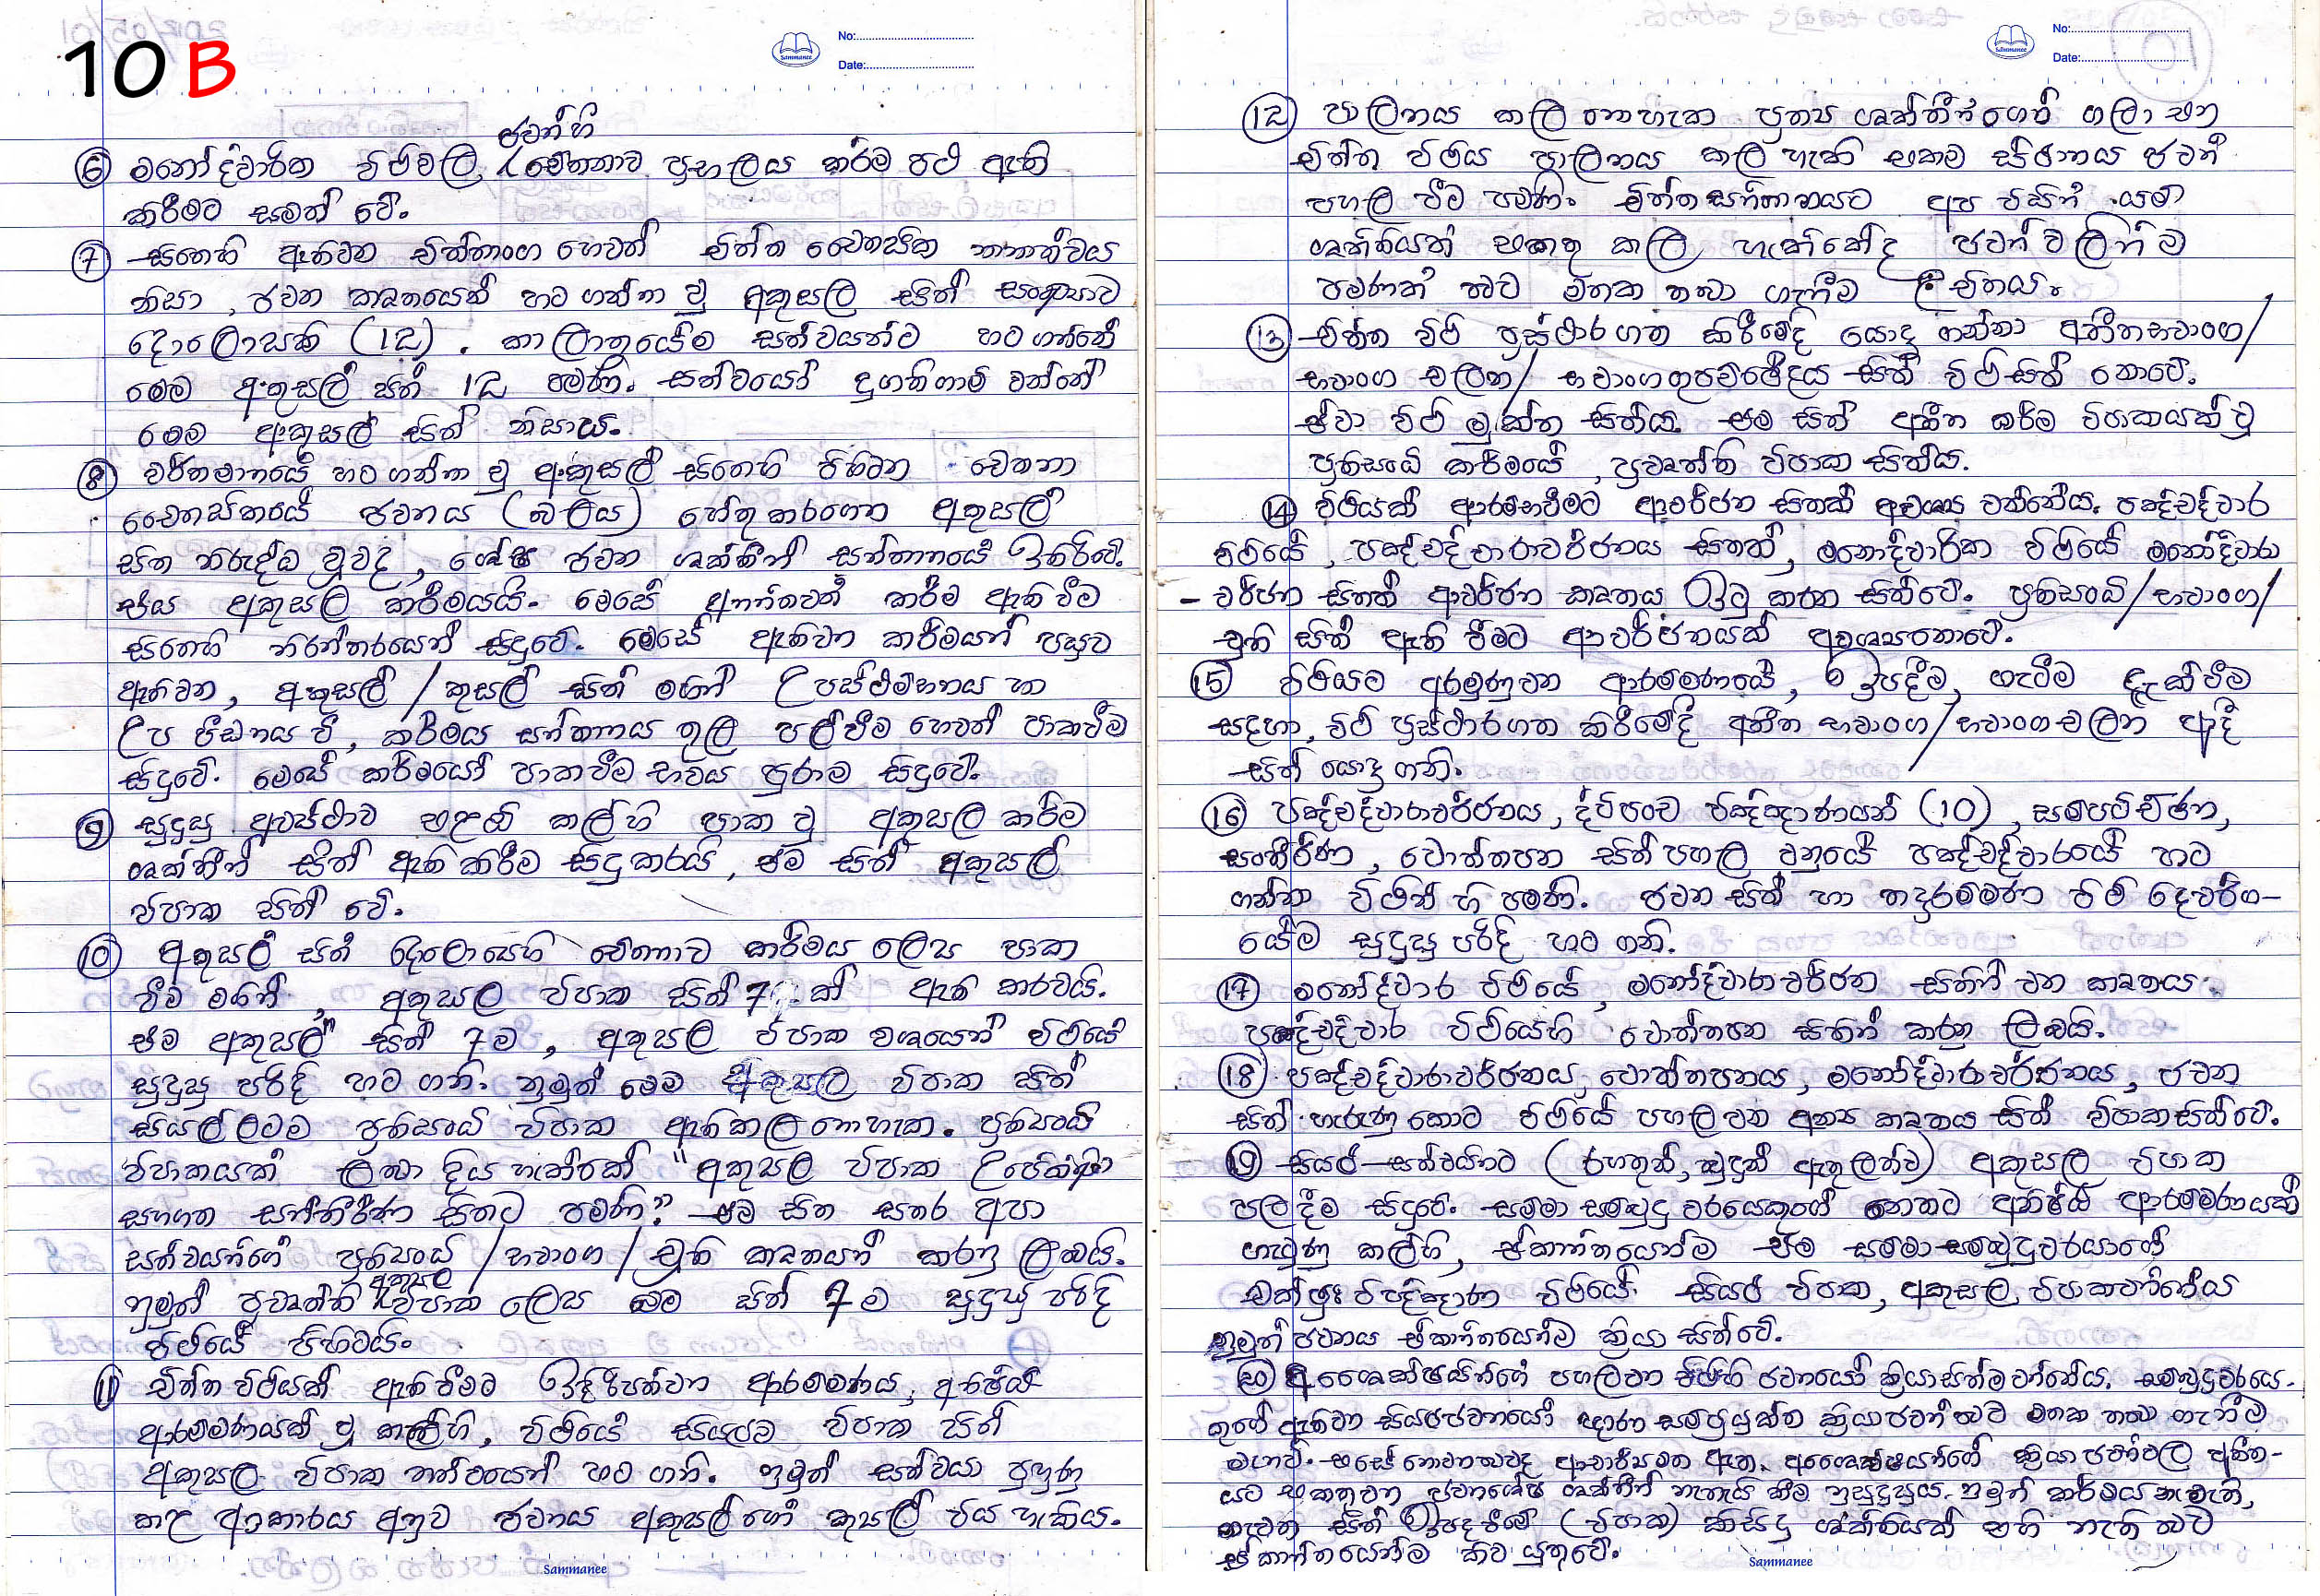 10B
No:
Date:
ජවන් හි
⑥ මනෝද්වාරික වීථිවල චේතනාව ප්‍රභලය කර්ම පථ ඇති
කිරීමට සමත් වේ.
⑦ සිතෙහි ඇතිවන චිත්තාංග හෙවත් චිත්ත චෛතසික නානත්වය
නිසා, ජවන කෘත්‍යයෙන් හට ගන්නා වූ අකුසල සිත් සංඛ්‍යාව
දොලොසකි (12). කාලාත්‍රයේම සත්වයන්ට හට ගන්නේ
මෙම අකුසල් සිත් 12 පමණි. සත්වයෝ දුගතිගාමි වන්නේ
මෙම අකුසල් සිත් නිසාය.
⑧ වර්තමානයේ හට ගන්නා වූ අකුසල් සිතෙහි පිහිටන චේතනා
චෛතසිකයේ ජවනය (බලය) හේතු කරගෙන අකුසල්
සිත නිරුද්ධ වුවද, ශේෂ ජවන ශක්තීන් සන්තානයේ ඉතිරිවේ.
එය අකුසල කර්මයයි. මෙසේ අනන්තවත් කර්ම ඇති වීම
සිතෙහි නිරන්තරයෙන් සිදුවේ. මෙසේ ඇතිවන කර්මයන් පසුව
ඇතිවන, අකුසල් / කුසල් සිත් මගින් උපස්ථම්භනය හා
උප පීඩනය වී, කර්මය සන්තානය තුල පල්වීම හෙවත් පාකවීම
සිදුවේ. මෙසේ කර්මයෝ පාකවීම භවය පුරාම සිදුවේ.
⑨ සුදුසු අවස්ථාව එළඹි කල්හි පාක වූ අකුසල කර්ම
ශක්තීන් සිත් ඇති කිරීම සිදු කරයි, එම සිත් අකුසල්
විපාක සිත් වේ.
⑩ අකුසල් සිත් දොලොසෙහි චේතනාව කර්මය ලෙස පාක
වීම මගින්, අකුසල විපාක සිත් 7 ක් ඇති කරවයි.
එම අකුසල් සිත් 7 ම, අකුසල විපාක වශයෙන් වීථියේ
සුදුසු පරිදි හට ගනී. නුමුත් මෙම අකුසල විපාක සිත්
සියල්ලටම ප්‍රතිසංධි විපාක ඇතිකල නොහැක. ප්‍රතිසංධි
විපාකයක් ලබා දිය හැක්කේ "අකුසල විපාක උපේක්ඛා
සහගත සන්තීරණ සිතට පමණි." එම සිත සතර අපා
සත්වයන්ගේ ප්‍රතිසංධි / භවාංග / චුති කෘත්‍යයන් කරනු ලබයි.
අකුසල
නුමුත් ප්‍රවෘත්ති විපාක ලෙස මෙම සිත් 7 ම සුදුසු පරිදි
වීථියේ පිහිටයි.
⑪ චිත්ත වීථියක් ඇතිවීමට ඉදිරිපත්වන ආරම්මණය, අනිෂ්ඨ
ආරම්මණයක් වූ කල්හි, වීථියේ සියලුම විපාක සිත්
අකුසල විපාක තත්වයෙන් හට ගනී. නුමුත් සත්වයා පුහුණු
කළ ආකාරය අනුව ජවනය අකුසල් හෝ කුසල් විය හැකිය.
Sammanee
No:
Date:
⑫ පාලනය කල නොහැක. ප්‍රත්‍ය ශක්තීන්ගෙන් ගලා එන
චිත්ත වීථිය පාලනය කල හැකි එකම ස්ථානය ජවන්
පහල වීම පමණි. චිත්තසන්තානයට අප විසින් යම්
ශක්තියක් එකතු කල හැක්කේද ජවන් වලින් ම
පමණක් බව මතක තබා ගැනීම උචිතය.
⑬ චිත්ත වීථි ප්‍රස්ථාර ගත කිරීමේදී යොදා ගන්නා අතීතභවාංග/
භවාංග චලන/ භවාංගඋපච්ඡේදය සිත් වීථිසිත් නොවේ.
ඒවා වීථි මුක්ත සිත්ය. එම සිත් අතීත කර්ම විපාකයක් වූ
ප්‍රතිසංධි කර්මයේ, ප්‍රවෘත්ති විපාක සිත්ය.
⑭ වීථියක් ආරම්භවීමට ආවර්ජන සිතක් අවශ්‍ය වන්නේය. පඤ්චද්වාර
වීථියේ, පඤ්චද්වාරාවර්ජනය සිතත්, මනෝද්වාරික වීථියේ මනෝද්වාරා
- වර්ජන සිතත් ආවර්ජන කෘත්‍යය ඉටු කරන සිත්වේ. ප්‍රතිසංධි/භවාංග/
චුති සිත් ඇති වීමට ආවර්ජනයක් අවශ්‍යනොවේ.
⑮ වීථියට අරමුණුවන ආරම්මණයේ, ඉපදීම, ගැටීම දැක්වීම
සදහා, වීථි ප්‍රස්ථාරගත කිරීමේදී අතීත භවාංග/භවාංගචලන ආදී
සිත් යොදා ගනී.
⑯ පඤ්චද්වාරාවර්ජනය, ද්විපංච විඤ්ඤාණයන් (10), සම්පටිච්ඡන,
සංතීරණ, වොත්තපන සිත් පහල වනුයේ පඤ්චද්වාරයේ හට
ගන්නා වීථින් හි පමණි. ජවන සිත් හා තදාරම්මණ වීථි දෙවර්ග-
යේම සුදුසු පරිදි හට ගනී.
⑰ මනෝද්වාර වීථියේ, මනෝද්වාරාවර්ජන සිතින් වන කෘත්‍යය
පඤ්චද්වාර වීථියෙහි වොත්තපන සිතින් කරනු ලබයි.
⑱ පඤ්චද්වාරාවර්ජනය, වොත්තපනය, මනෝද්වාරාවර්ජනය, ජවන
සිත් හැරුණු කොට වීථියේ පහලවන අන්‍ය කෘත්‍යය සිත් විපාකසිත්වේ.
⑲ සියළු සත්වයින්ට (රහතුන්, බුදුන් ඇතුලත්ව) අකුසල විපාක
පලදීම සිදුවේ. සම්මා සම්බුදු වරයෙකුගේ නෙතට අනිෂ්ඨ ආරම්මණයක්
ගැටුණු කල්හි, ඒකාන්තයෙන්ම එම සම්මාසම්බුදුවරයාගේ
චක්ෂුඃ විඤ්ඤාණ වීථියේ සියළු විපාක, අකුසල විපාකවන්නේය
නුමුත් ජවනය ඒකාන්තයෙන්ම ක්‍රියා සිත්වේ.
⑳ අශෛක්ෂයින්ගේ පහලවන වීථිහි ජවනයෝ ක්‍රියාසිත්ම වන්නේය. සම්බුදුවරයෙ-
කුගේ ඇතිවන සියළුජවනයෝ ඥාණ සම්ප්‍රයුක්ත ක්‍රියාජවන් බවට මතක තබා ගැනීම
මැනවි. එසේ නොවන බවද ආචාරීසමත ඇත. අශෛක්ෂයන්ගේ ක්‍රියා ජවන්වල අතීත-
යට එකතුවන ජවනශේෂ ශක්තීන් නැතැයි කීම නුසුදුසුය. නුමුත් කර්මය නැමැති,
නැවත සිත් ඉපදවීමේ (විපාක) කිසිදු ශක්තියක් එහි නැති බව
ඒකාන්තයෙන්ම කිව යුතුවේ.
Sammanee